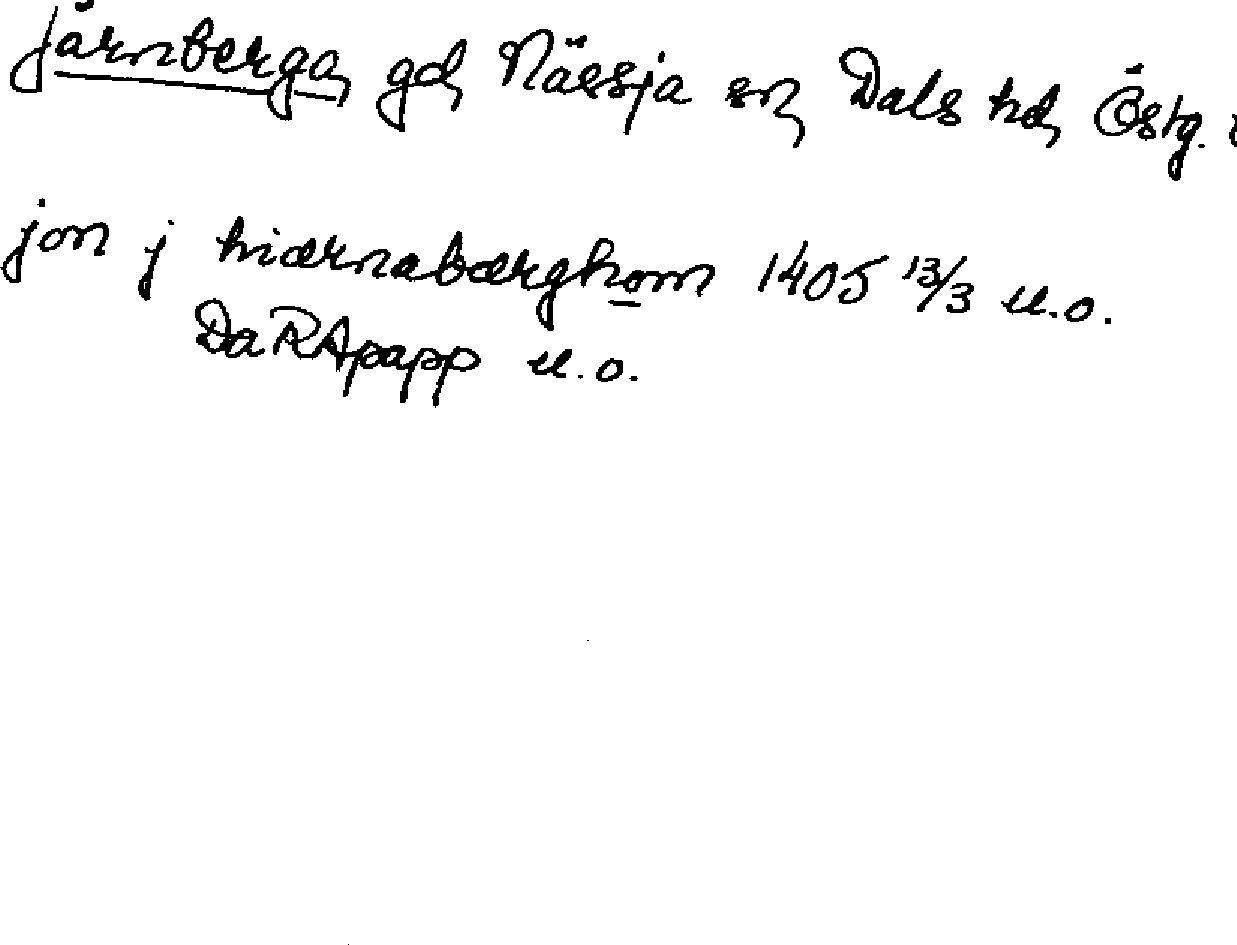 Järnberga, gd, Nässja sn, Dals hd, Östg.
jon j hiærnabærghom 1405 13/3 u.o.
Da RApapp u.o.